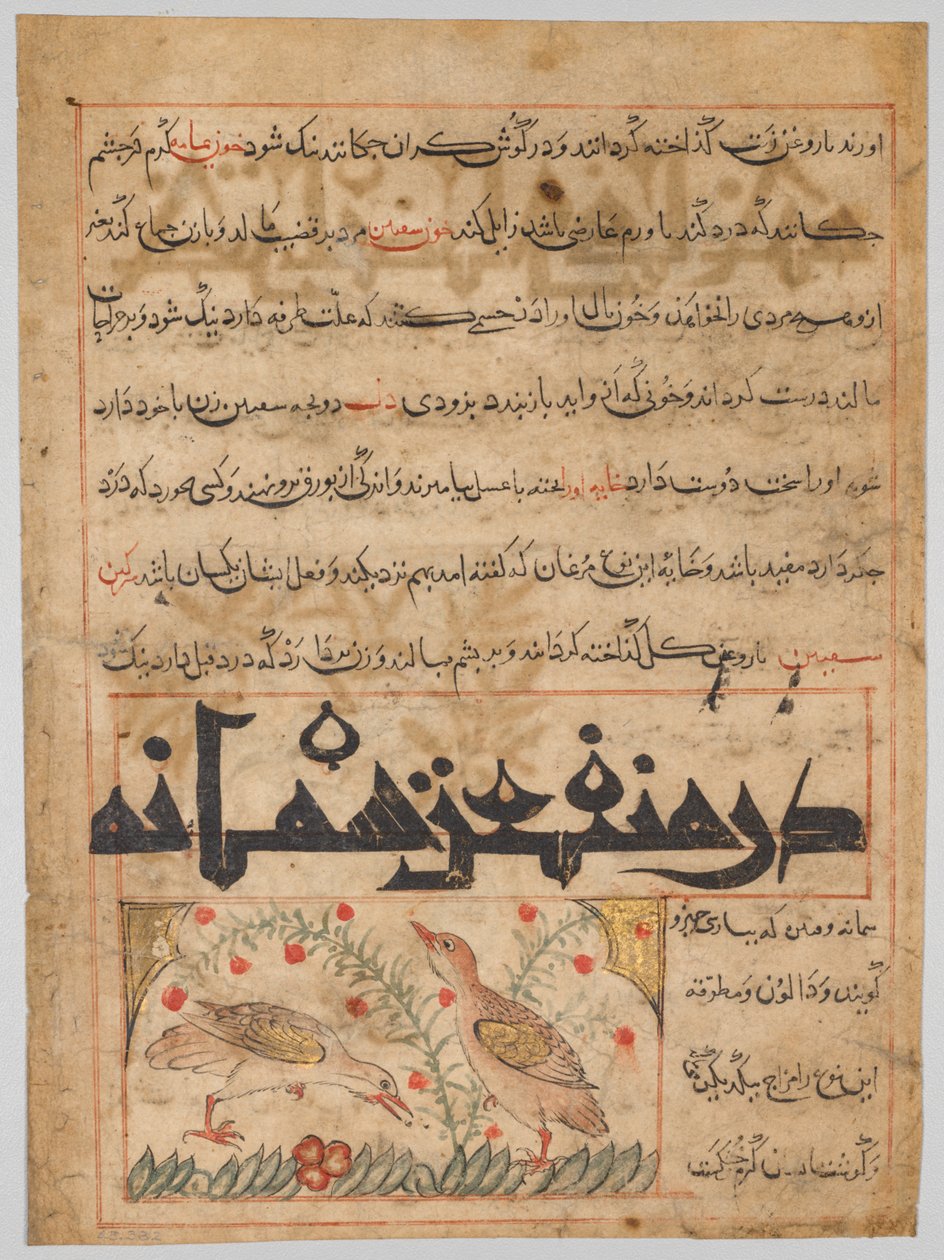 اورند با روغن زفت گذاخته گردانند و در گوش کران چکانند نیک شود خون یمامه گرم در چشم
چکانند که درد کند یا ورم عارضی باشد زایل کند خون سفنین مرد بر قضیب مالد و با زن جماع کند بغیر
از و هیچ مردی را نخواهذ و خون بال او را در جسمی کنند که علّت طرفه دارد نیک شود و بر جراحات
مالند درست کرداند و خونی که از و اید باز بندد بزودی دو بجه سفنین زن با خود دارد
شوی او را سخت دوست دارد خایه او را بخته با عسل بیامیزند و اندکی از بوره برو نهند و کسی بخورد که درد
جگر دارد مفید باشد و خایه این نوع مرغان که گفته امد بهم نزدیکند و فعل ایشان یکسان باشد سرکین
سفنین با روغن کل گذاخته کردانند و بر بشم مالند و زن بردارد که درد قبل دارد نیک شود
در منفعت سمانه
سمانه و مره که ببارسی جیزو
گویند و دالون و مطرقه
این نوع را مزاج بیکدیگر
و گوشت ایشان گرم خشکست
43.382